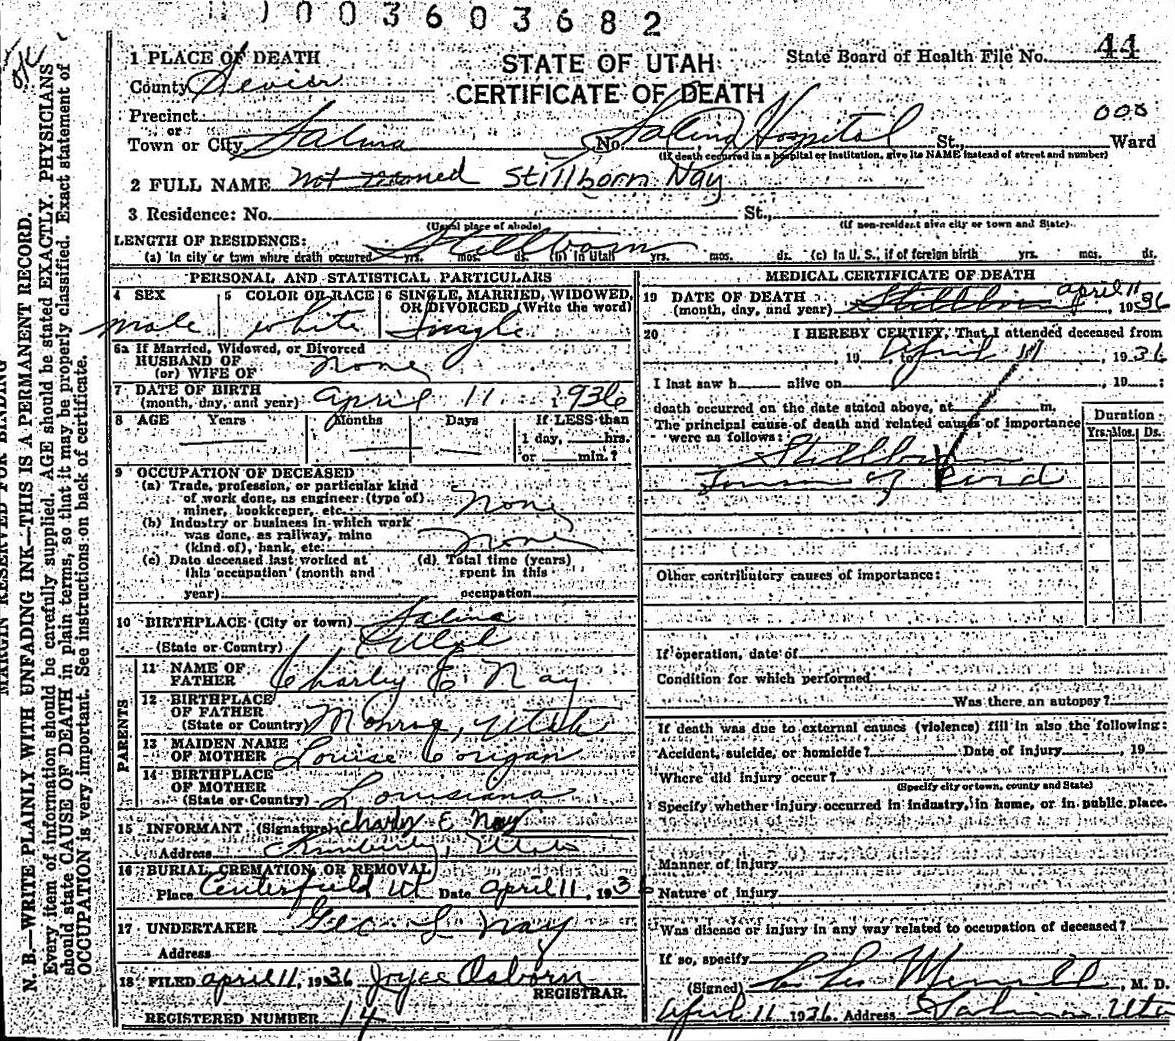 1003603682
1 PLACE OF DEATH
STATE OF UTAH
State Board of Health File No. 44
County Sevier
CERTIFICATE OF DEATH
Precinct
or
000
Town or City Salina No. Salina Hospital St., Ward
(If death occurred in a hospital or institution, give its NAME instead of street and number)
2 FULL NAME Not named Stillborn Nay
3 Residence: No. St.,
(Usual place of abode) (If non-resident give city or town and State)
LENGTH OF RESIDENCE: Stillborn
(a) In city or town where death occurred yrs. mos. ds. (b) In Utah yrs. mos. ds. (c) In U. S., if of foreign birth yrs. mos. ds.
PERSONAL AND STATISTICAL PARTICULARS
4 SEX male
5 COLOR OR RACE white
6 SINGLE, MARRIED, WIDOWED, OR DIVORCED (Write the word) Single
6a If Married, Widowed, or Divorced
HUSBAND OF
(or) WIFE OF none
7 DATE OF BIRTH
(month, day, and year) April 11 1936
8 AGE Years Months Days If LESS than
1 day, hrs.
or min.?
9 OCCUPATION OF DECEASED
(a) Trade, profession, or particular kind
of work done, as engineer (type of)
miner, bookkeeper, etc. None
(b) Industry or business in which work
was done, as railway, mine
(kind of), bank, etc. None
(c) Date deceased last worked at
this occupation (month and
year)
(d) Total time (years)
spent in this
occupation
10 BIRTHPLACE (City or town) Salina
(State or Country) Utah
PARENTS
11 NAME OF
FATHER Charley E. Nay
12 BIRTHPLACE
OF FATHER
(State or Country) Monroe, Utah
13 MAIDEN NAME
OF MOTHER Louise Corigan
14 BIRTHPLACE
OF MOTHER
(State or Country) Louisiana
15 INFORMANT (Signature) Charley E Nay
Address Kimberly, Utah
16 BURIAL, CREMATION OR REMOVAL
Place Centerfield Ut Date April 11, 1936
17 UNDERTAKER Geo L Nay
Address
18 FILED April 11, 1936 Joyce Osborn
REGISTRAR.
REGISTERED NUMBER 14
MEDICAL CERTIFICATE OF DEATH
19 DATE OF DEATH
(month, day, and year) Stillborn April 11, 1936
20 I HEREBY CERTIFY, That I attended deceased from
, 19 to April 11, 1936
I last saw h alive on , 19 ;
death occurred on the date stated above, at m.
The principal cause of death and related causes of importance
were as follows:
Duration
Yrs. Mos. Ds.
Stillborn
of Cord
Other contributory causes of importance:
If operation, date of
Condition for which performed
Was there an autopsy?
If death was due to external causes (violence) fill in also the following:
Accident, suicide, or homicide? Date of injury , 19
Where did injury occur?
(Specify city or town, county and State)
Specify whether injury occurred in industry, in home, or in public place.
Manner of injury
Nature of injury
Was disease or injury in any way related to occupation of deceased?
If so, specify
(Signed) Merrill, M. D.
April 11 1936 Address Salina, Utah
MARGIN RESERVED FOR BINDING
N. B.—WRITE PLAINLY WITH UNFADING INK—THIS IS A PERMANENT RECORD.
Every item of information should be carefully supplied. AGE should be stated EXACTLY. PHYSICIANS
should state CAUSE OF DEATH in plain terms, so that it may be properly classified. Exact statement of
OCCUPATION is very important. See instructions on back of certificate.